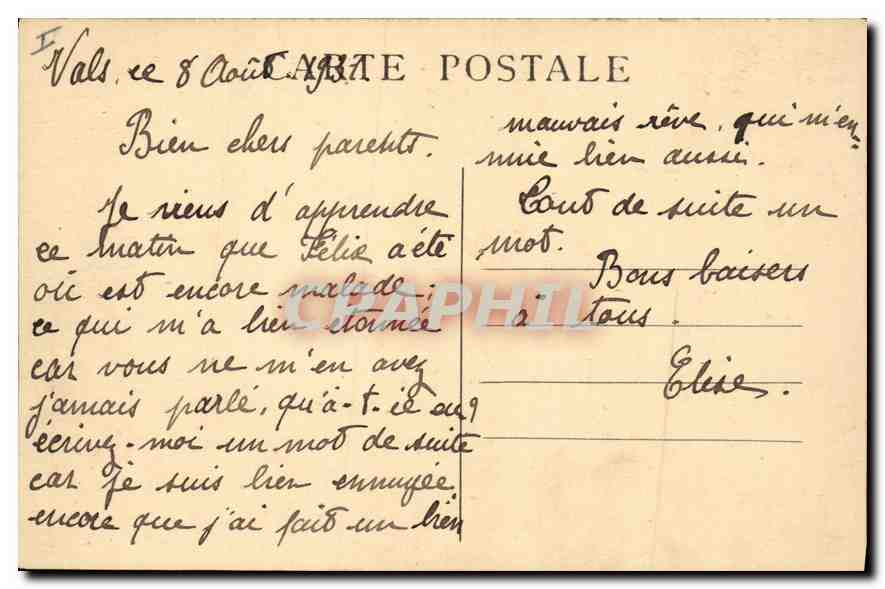 I
CARTE POSTALE
Vals, ce 8 Août 1931.
Bien chers parents.
Je viens d'apprendre
ce matin que Félix a été
où est encore malade;
ce qui m'a bien étonnée
car vous ne m'en avez
jamais parlé, qu'à-t-il eu?
écrivez-moi un mot de suite
car je suis bien ennuyée
encore que j'ai fait un bien
mauvais rêve, qui m'en-
nuie bien aussi.
Tout de suite un
mot.
Bons baisers
à tous.
Elise.
CPAPHIL